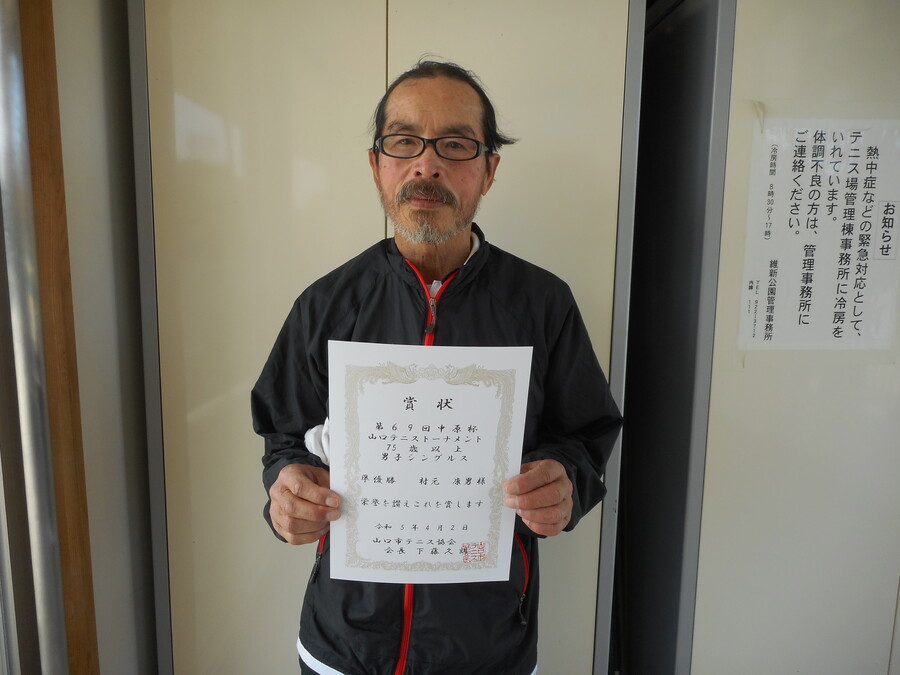 賞状
第69回中原杯
山口テニストーナメント
75歳以上
男子シングルス
準優勝 材元 康男様
栄誉を讃えこれを賞します
令和5年4月2日
山口市テニス協会
会長 下藤文
お知らせ
熱中症などの緊急対応として、
テニス場管理棟事務所に冷房を
いれています。
体調不良の方は、管理事務所に
ご連絡ください。
(冷房時間 8時30分~17時)
維新公園管理事務所
内線 111